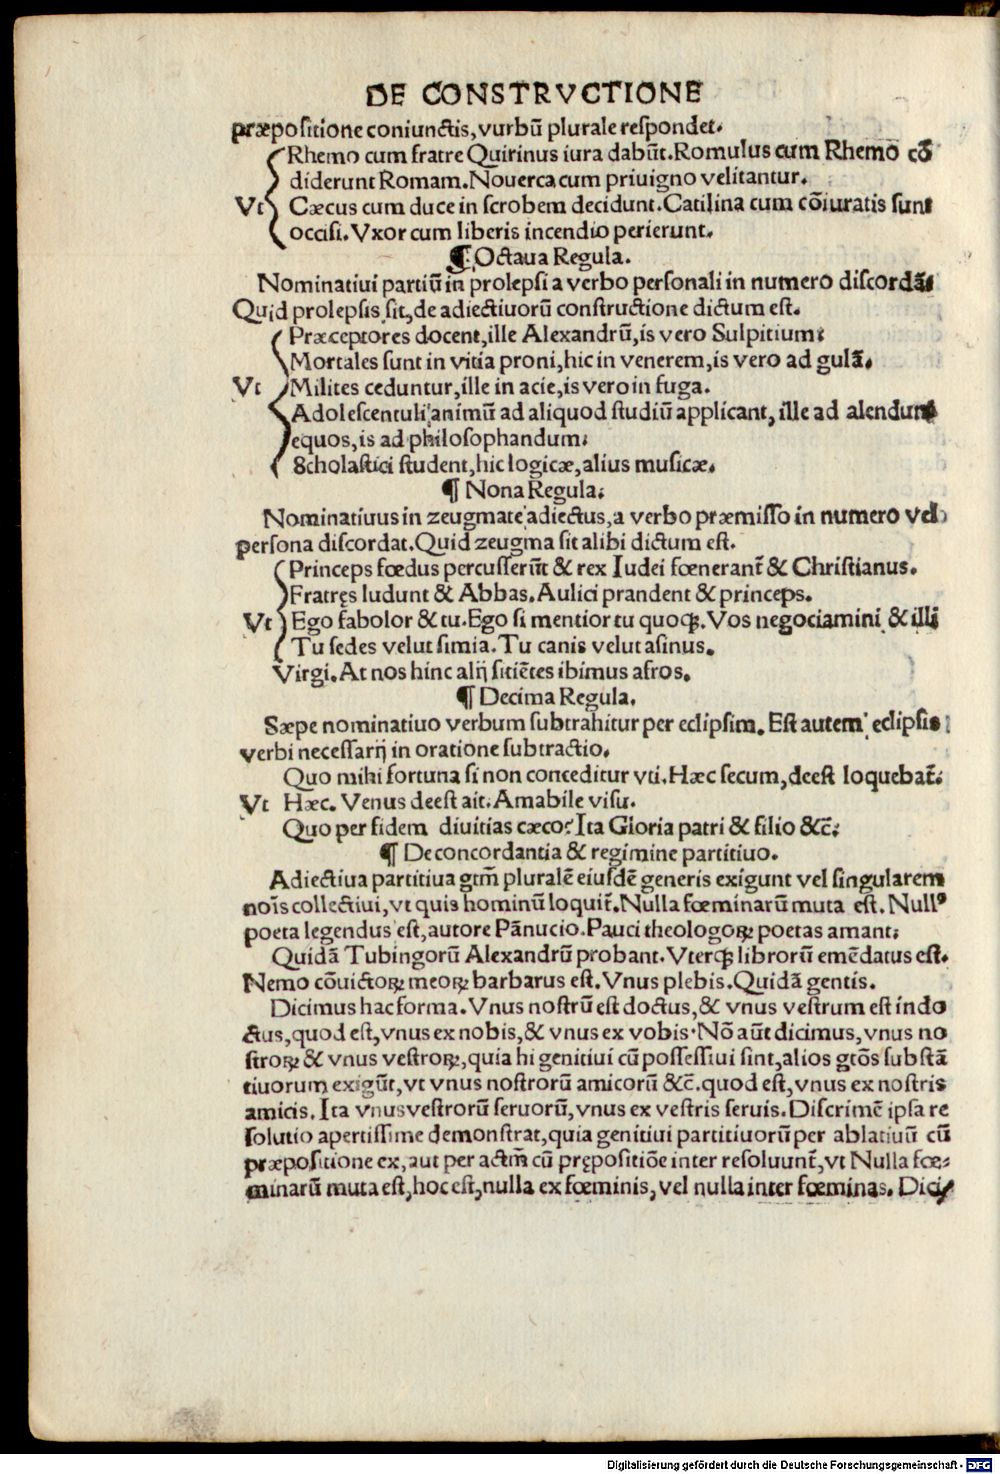 DE CONSTRVCTIONE
præpositione coniunctis, vurbū plurale respondet.
Rhemo cum fratre Quirinus iura dabūt. Romulus cum Rhemo cō
diderunt Romam. Nouerca cum priuigno velitantur.
Vt Cæcus cum duce in scrobem decidunt. Catilina cum cōiuratis sunt
occisi. Vxor cum liberis incendio perierunt.
¶ Octaua Regula.
Nominatiui partiū in prolepsi a verbo personali in numero discordāt
Quid prolepsis sit, de adiectiuorū constructione dictum est.
Præceptores docent, ille Alexandrū, is vero Sulpitium:
Mortales sunt in vitia proni, hic in venerem, is vero ad gulā.
Vt Milites ceduntur, ille in acie, is vero in fuga.
Adolescentuli animū ad aliquod studiū applicant, ille ad alendum
equos, is ad philosophandum:
Scholastici student, hic logicæ, alius musicæ.
¶ Nona Regula:
Nominatiuus in zeugmate adiectus, a verbo præmisso in numero vel
persona discordat. Quid zeugma sit alibi dictum est.
Princeps fœdus percusserūt & rex Iudei fœnerant̄ & Christianus.
Fratręs ludunt & Abbas. Aulici prandent & princeps.
Vt Ego fabolor & tu. Ego si mentior tu quoqꝫ. Vos negociamini & illi
Tu sedes velut simia. Tu canis velut asinus.
Virgi. At nos hinc alij sitiētes ibimus afros.
¶ Decima Regula.
Sæpe nominatiuo verbum subtrahitur per eclipsim. Est autem eclipsis
verbi necessarij in oratione subtractio.
Quo mihi fortuna si non conceditur vti. Hæc secum, deest loquebat̄:
Vt Hæc. Venus deest ait. Amabile visu.
Quo per fidem diuitias cæco? Ita Gloria patri & filio &c̄:
¶ De concordantia & regimine partitiuo.
Adiectiua partitiua gtm̄ pluralē eiusdē generis exigunt vel singularem
noīs collectiui, vt quis hominū loquit̄. Nulla fœminarū muta est. Nullꝰ
poeta legendus est, autore Pānucio. Pauci theologoꝝ poetas amant:
Quidā Tubingorū Alexandrū probant. Vterqꝫ librorū emēdatus est.
Nemo cōuictoꝝ meoꝝ barbarus est. Vnus plebis. Quidā gentis.
Dicimus hac forma. Vnus nostrū est doctus, & vnus vestrum est indo
ctus, quod est, vnus ex nobis, & vnus ex vobis. Nō aūt dicimus, vnus no
stroꝝ & vnus vestroꝝ, quia hi genitiui cū possessiui sint, alios gtōs substā
tiuorum exigūt, vt vnus nostrorū amicorū &c̄. quod est, vnus ex nostris
amicis. Ita vnus vestrorū seruorū, vnus ex vestris seruis. Discrimē ipsa re
solutio apertissime demonstrat, quia genitiui partitiuorū per ablatiuū cū
præpositione ex, aut per actm̄ cū prępositiōe inter resoluunt̄, vt Nulla fœ-
minarū muta est, hoc est, nulla ex fœminis, vel nulla inter fœminas. Dici/
Digitalisierung gefördert durch die Deutsche Forschungsgemeinschaft - DFG